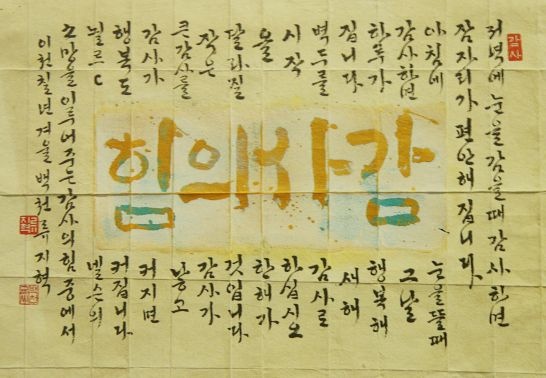 감사
저녁에 눈을 감을때 감사하면
잠자리가 편안해 집니다
아침에 눈을뜰때
감사하면 그날
하루가 행복해
집니다 새해
벽두를 감사로
시작 하십시오
올 한해가
달라질 것입니다
작은 감사가
큰감사를 낳고
감사가 커지면
행복도 커집니다
뇔르C 넬슨의
소망을이루어주는감사의힘중에서
이천칠년겨울 백천 류지혁
감사의힘